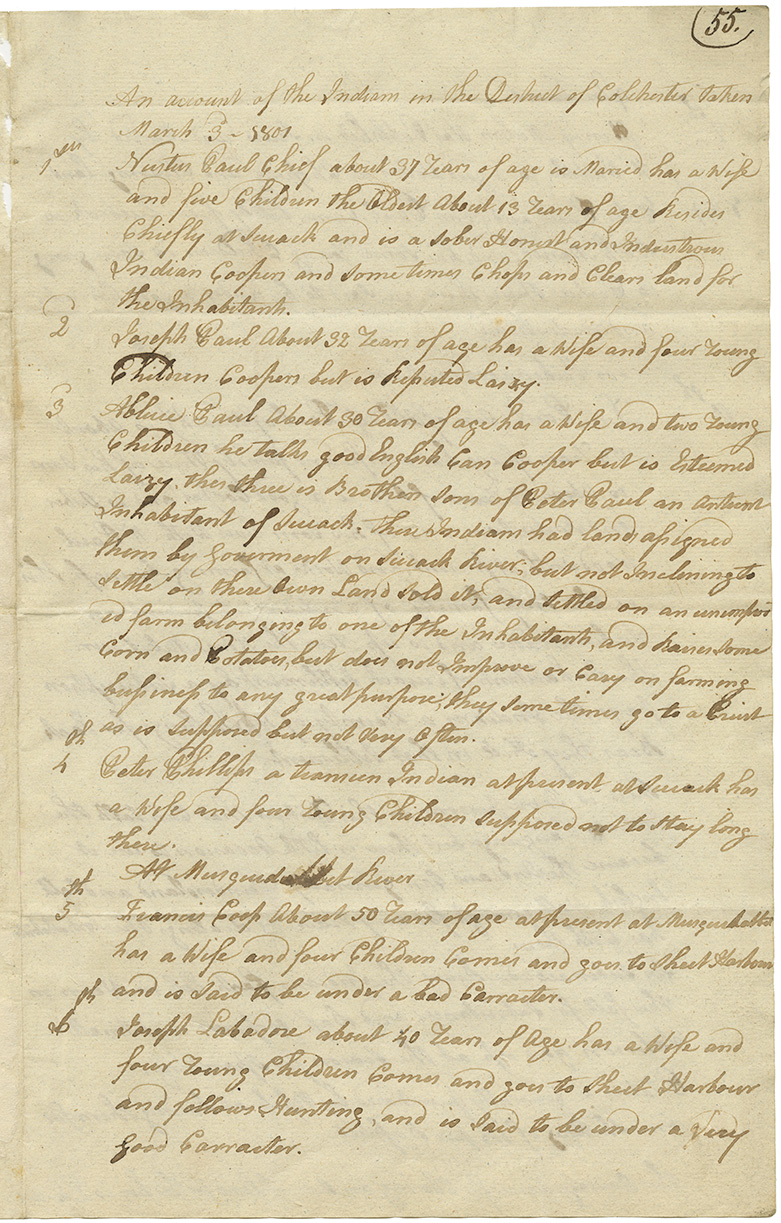 55.
An account of the Indians in the District of Colchester taken
March 3 - 1801
1
Paul Chief about 37 Years of age is Maried has a Wife
and five Children the Oldest About 13 Years of age Resides
Chiefly at Suack and is a sober Honest and Industrous
Indian Coopers and some times Chops and Clears land for
the Inhabitants.
2 Joseph Paul About 32 Years of age has a Wife and four Young
Children Coopers but is Reputed Laizy.
3 Paul About 30 Years of age has a Wife and two Young
Children he talks good English Can Cooper but is Esteemed
Laizy, thes three is Brothers Sons of Peter Paul an Antient
Inhabitant of Suack. These Indians had lands assigned
them by Goverment on Suack River, but not Inclining to
Settle on there Own Land Sold it, and settled on an unemprov
ed farm belonging to one of the Inhabitants, and Raises some
Corn and Potatoes, but does not Improve or Cary on farming
bussiness to any great purpose, they some times go to a Priest
as is supposed but not very Often.
4th Peter Phillips a Indian at present at Suack has
a Wife and four Young Children Supposed not to Stay long
there.
At River
5th Francis Coop About 50 Years of age at present at
has a Wife and four Children Comes and goes to Sheet Harbour
and is Said to be under a bad Carracter.
6th Joseph Labadore about 40 Years of Age has a Wife and
four Young Children Comes and goes to Sheet Harbour
and follows Hunting, and is Said to be under a Very
good Carracter.